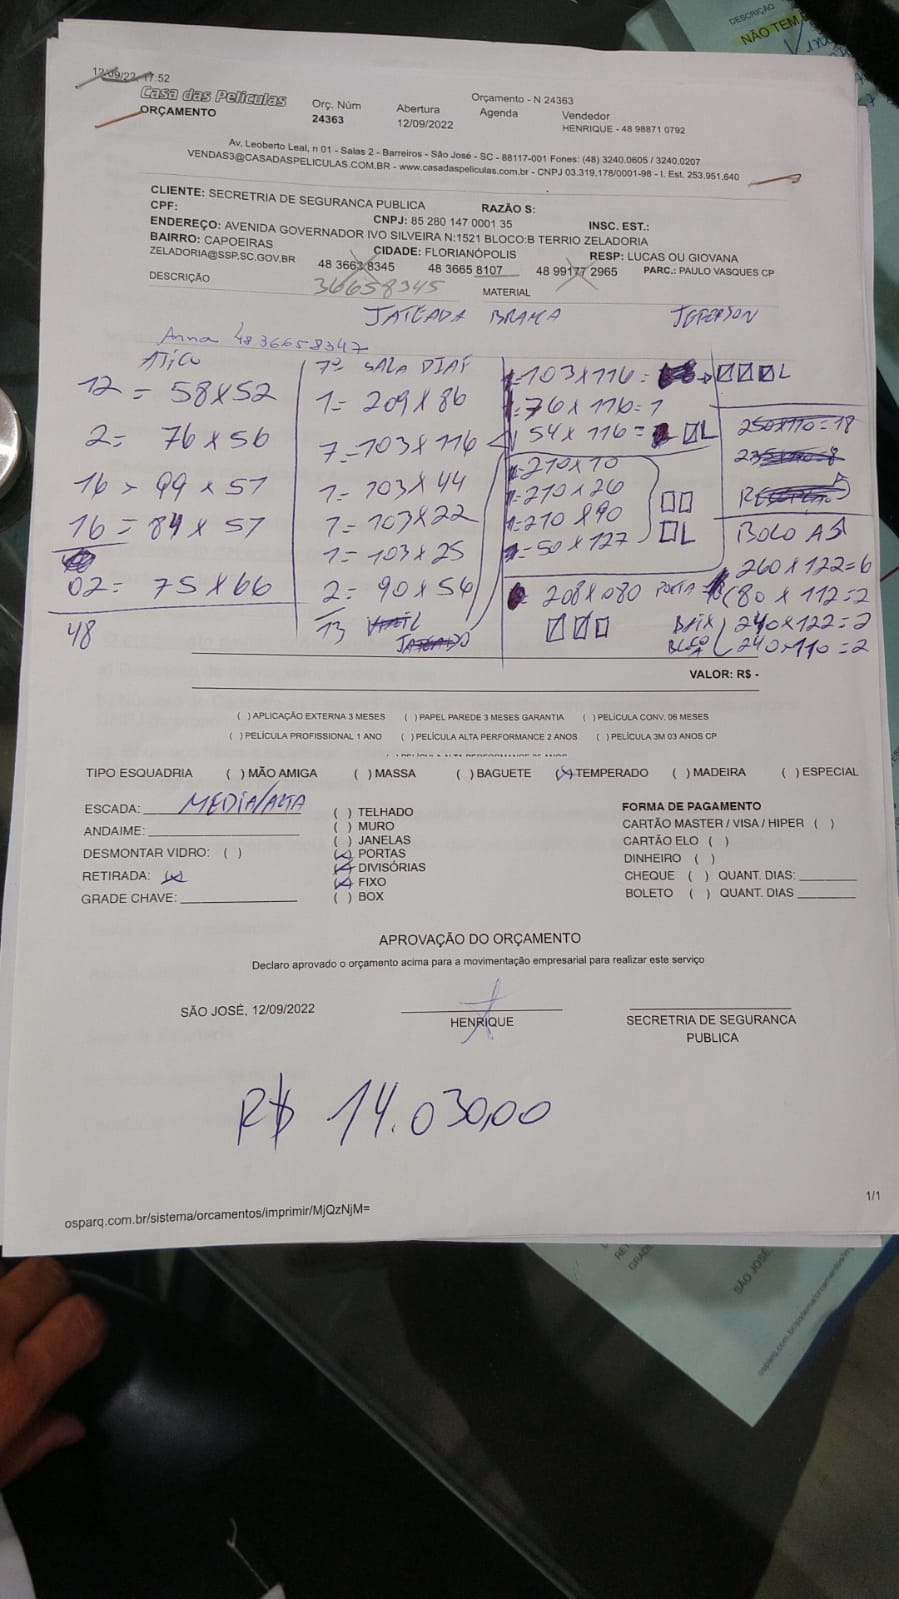 12/09/22, 17:52
Orçamento - N 24363
Casa das Películas
ORÇAMENTO
Orç. Núm
24363
Abertura
12/09/2022
Agenda
Vendedor
HENRIQUE - 48 98871 0792
Av. Leoberto Leal, n 01 - Salas 2 - Barreiros - São José - SC - 88117-001 Fones: (48) 3240.0605 / 3240.0207
VENDAS3@CASADASPELICULAS.COM.BR - www.casadaspeliculas.com.br - CNPJ 03.319.178/0001-98 - I. Est. 253.951.640
CLIENTE: SECRETRIA DE SEGURANCA PUBLICA
RAZÃO S:
CPF:
CNPJ: 85 280 147 0001 35
INSC. EST.:
ENDEREÇO: AVENIDA GOVERNADOR IVO SILVEIRA N:1521 BLOCO:B TERRIO ZELADORIA
BAIRRO: CAPOEIRAS
CIDADE: FLORIANÓPOLIS
RESP: LUCAS OU GIOVANA
ZELADORIA@SSP.SC.GOV.BR
48 3663 8345
48 3665 8107
48 99177 2965
PARC.: PAULO VASQUES CP
DESCRIÇÃO
36658345
MATERIAL
JATEADA BRANCA
JEFERSON
Anna 48 36658347
ATICO
12 = 58 x 52
2 = 76 x 56
16 = 99 x 51
16 = 84 x 51
02 = 75 x 66
48
7º SALA DIAF
1 = 209 x 86
7 = 103 x 116
1 = 103 x 44
1 = 103 x 22
1 = 103 x 25
2 = 90 x 54
13
JATEADO
1 = 103 x 116 =
1 = 76 x 116 = 1
1 54 x 116 =
210 x 10
210 x 26
210 x 90
50 x 127
208 x 080 PORTA
250x110 = 18
BOLO A
260 x 122 = 6
80 x 112 = 2
240 x 122 = 2
240 x 110 = 2
VALOR: R$ -
( ) APLICAÇÃO EXTERNA 3 MESES ( ) PAPEL PAREDE 3 MESES GARANTIA ( ) PELÍCULA CONV. 06 MESES
( ) PELÍCULA PROFISSIONAL 1 ANO ( ) PELÍCULA ALTA PERFORMANCE 2 ANOS ( ) PELÍCULA 3M 03 ANOS CP
TIPO ESQUADRIA ( ) MÃO AMIGA ( ) MASSA ( ) BAGUETE (x) TEMPERADO ( ) MADEIRA ( ) ESPECIAL
ESCADA: MEDIA/ALTA
ANDAIME:
DESMONTAR VIDRO: ( )
RETIRADA: (x)
GRADE CHAVE:
( ) TELHADO
( ) MURO
( ) JANELAS
(x) PORTAS
(x) DIVISÓRIAS
(x) FIXO
( ) BOX
FORMA DE PAGAMENTO
CARTÃO MASTER / VISA / HIPER ( )
CARTÃO ELO ( )
DINHEIRO ( )
CHEQUE ( ) QUANT. DIAS:
BOLETO ( ) QUANT. DIAS
APROVAÇÃO DO ORÇAMENTO
Declaro aprovado o orçamento acima para a movimentação empresarial para realizar este serviço
SÃO JOSÉ, 12/09/2022
HENRIQUE
SECRETRIA DE SEGURANCA
PUBLICA
R$ 14.030,00
1/1
osparq.com.br/sistema/orcamentos/imprimir/MjQzNjM=
DESCRIÇÃO
NÃO TEM